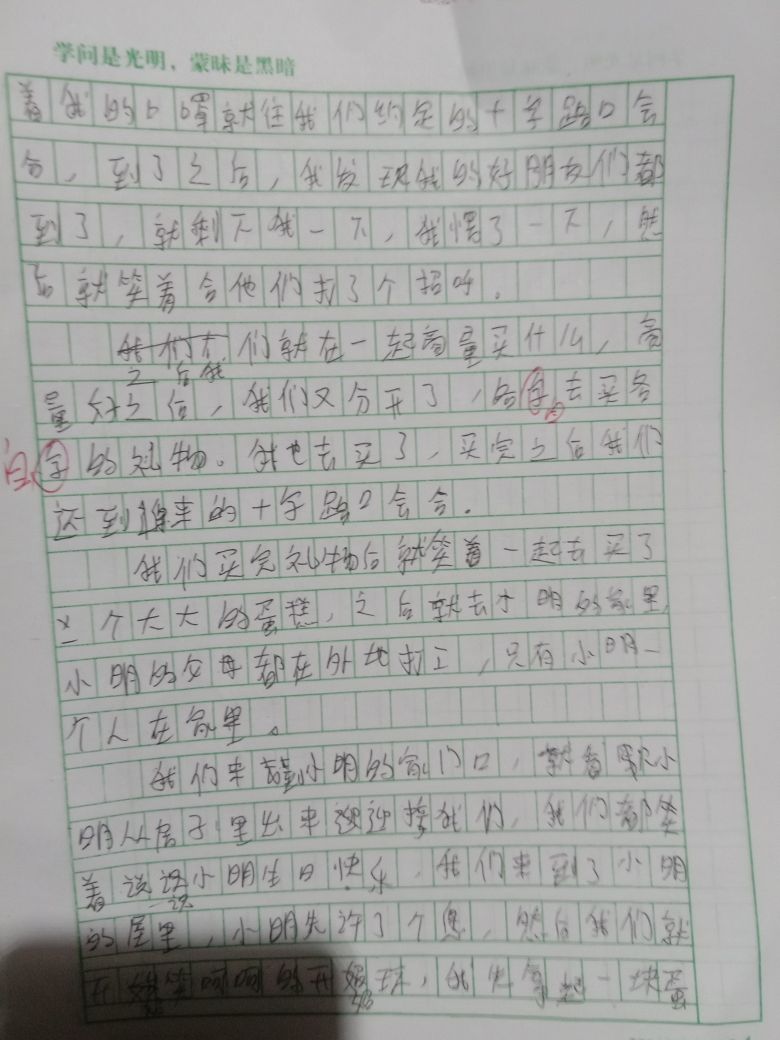 学问是光明，蒙昧是黑暗
着我的口罩就往我们约定的十字路口会
合，到了之后，我发现我的好朋友们都
到了，就剩下我一下，我愣了一下，然
后就笑着合他们打了个招呼。
之后我们就在一起商量买什么，商
量好之后，我们又分开了，各自去买各
自的礼物。我也去买了，买完之后我们
还到原来的十字路口会合。
我们买完礼物后就笑着一起去买了
一个大大的蛋糕，之后就去小明的家里，
小明的父母都在外地打工，只有小明一
个人在家里。
我们来到小明的家门口，就看见小
明从房子里出来迎接我们，我们都笑
着说小明生日快乐，我们来到了小明
的屋里，小明先许了个愿，然后我们就
开始笑呵呵的开始，我先拿起一块蛋